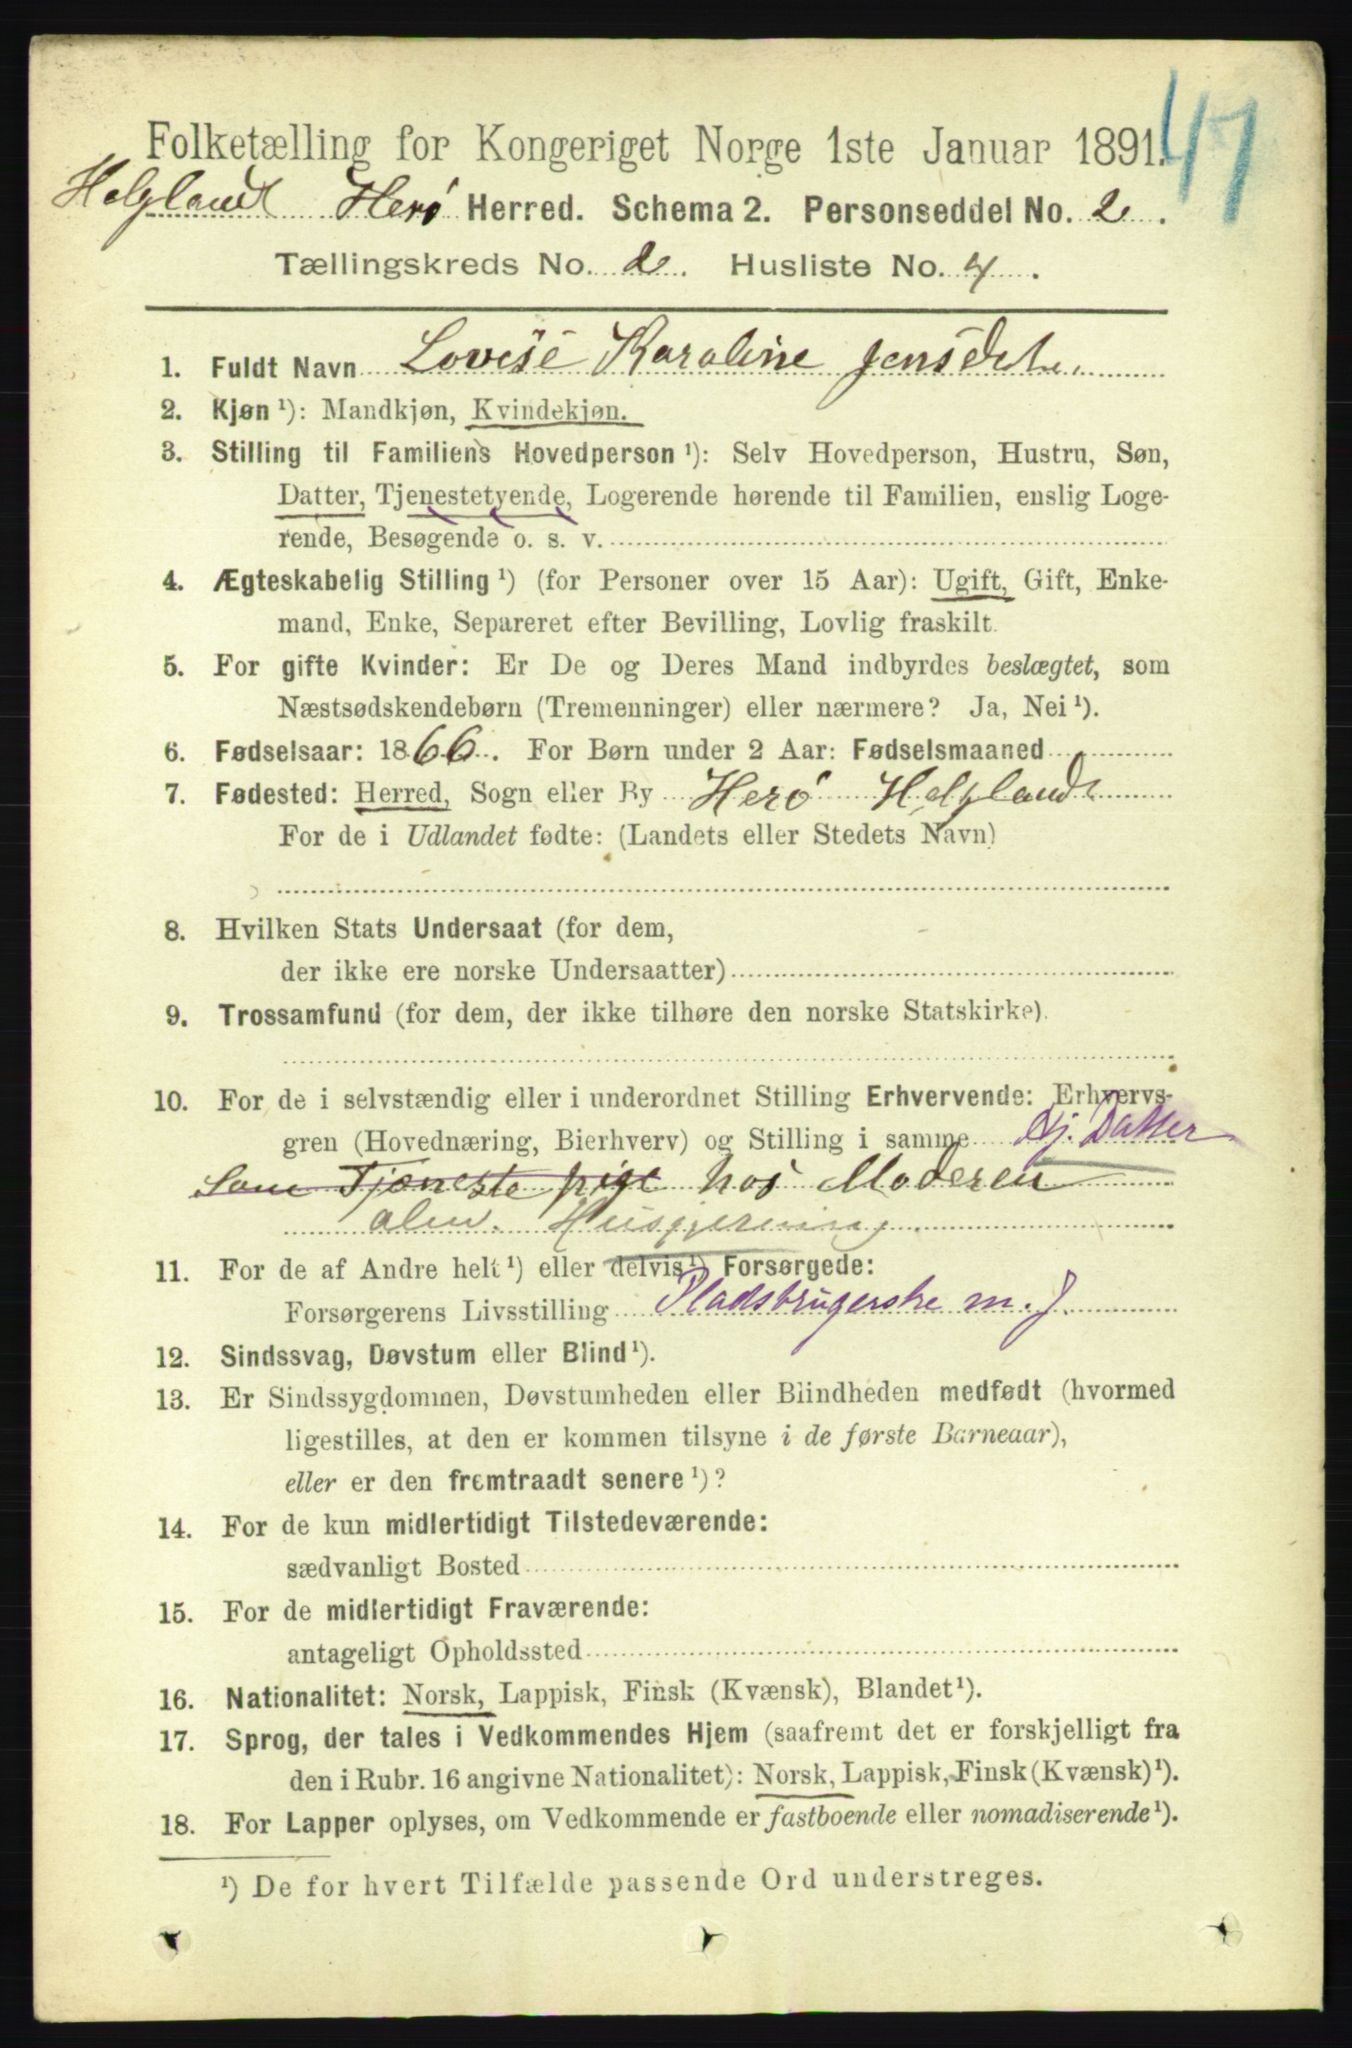 47
Folketælling for Kongeriget Norge 1ste Januar 1891.
Helgland Herø Herred. Schema 2. Personseddel No. 2.
Tællingskreds No. 2. Husliste No. 4.
1. Fuldt Navn Lovise Karoline Jensdtr.
2. Kjøn ¹): Mandkjøn, Kvindekjøn.
3. Stilling til Familiens Hovedperson ¹): Selv Hovedperson, Hustru, Søn,
Datter, Tjenestetyende, Logerende hørende til Familien, enslig Loge-
rende, Besøgende o. s. v.
4. Ægteskabelig Stilling ¹) (for Personer over 15 Aar): Ugift, Gift, Enke-
mand, Enke, Separeret efter Bevilling, Lovlig fraskilt.
5. For gifte Kvinder: Er De og Deres Mand indbyrdes beslægtet, som
Næstsødskendebørn (Tremenninger) eller nærmere? Ja, Nei ¹).
6. Fødselsaar: 1866. For Børn under 2 Aar: Fødselsmaaned
7. Fødested: Herred, Sogn eller By Herø Helgland
For de i Udlandet fødte: (Landets eller Stedets Navn)
8. Hvilken Stats Undersaat (for dem,
der ikke ere norske Undersaatter)
9. Trossamfund (for dem, der ikke tilhøre den norske Statskirke).
10. For de i selvstændig eller i underordnet Stilling Erhvervende: Erhvervs-
gren (Hovednæring, Bierhverv) og Stilling i samme Hj. Datter
Som Tjeneste pige hos Moderen
alm. Husgjerning.
11. For de af Andre helt ¹) eller delvis ¹) Forsørgede:
Forsørgerens Livsstilling Pladsbrugerske m. J.
12. Sindssvag, Døvstum eller Blind ¹).
13. Er Sindssygdommen, Døvstumheden eller Blindheden medfødt (hvormed
ligestilles, at den er kommen tilsyne i de første Barneaar),
eller er den fremtraadt senere ¹)?
14. For de kun midlertidigt Tilstedeværende:
sædvanligt Bosted
15. For de midlertidigt Fraværende:
antageligt Opholdssted
16. Nationalitet: Norsk, Lappisk, Finsk (Kvænsk), Blandet ¹).
17. Sprog, der tales i Vedkommendes Hjem (saafremt det er forskjelligt fra
den i Rubr. 16 angivne Nationalitet): Norsk, Lappisk, Finsk (Kvænsk) ¹).
18. For Lapper oplyses, om Vedkommende er fastboende eller nomadiserende ¹).
¹) De for hvert Tilfælde passende Ord understreges.